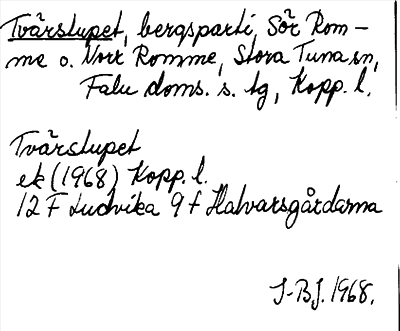 Tvärstupet, bergsparti, Sör Rom-
me o. Norr Romme, Stora Tuna sn,
Falu doms. s. tg, Kopp. l.
Tvärstupet
ek (1968) Kopp. l.
12 F Ludvika 9 f Halvarsgårdarna
I-BJ. 1968.